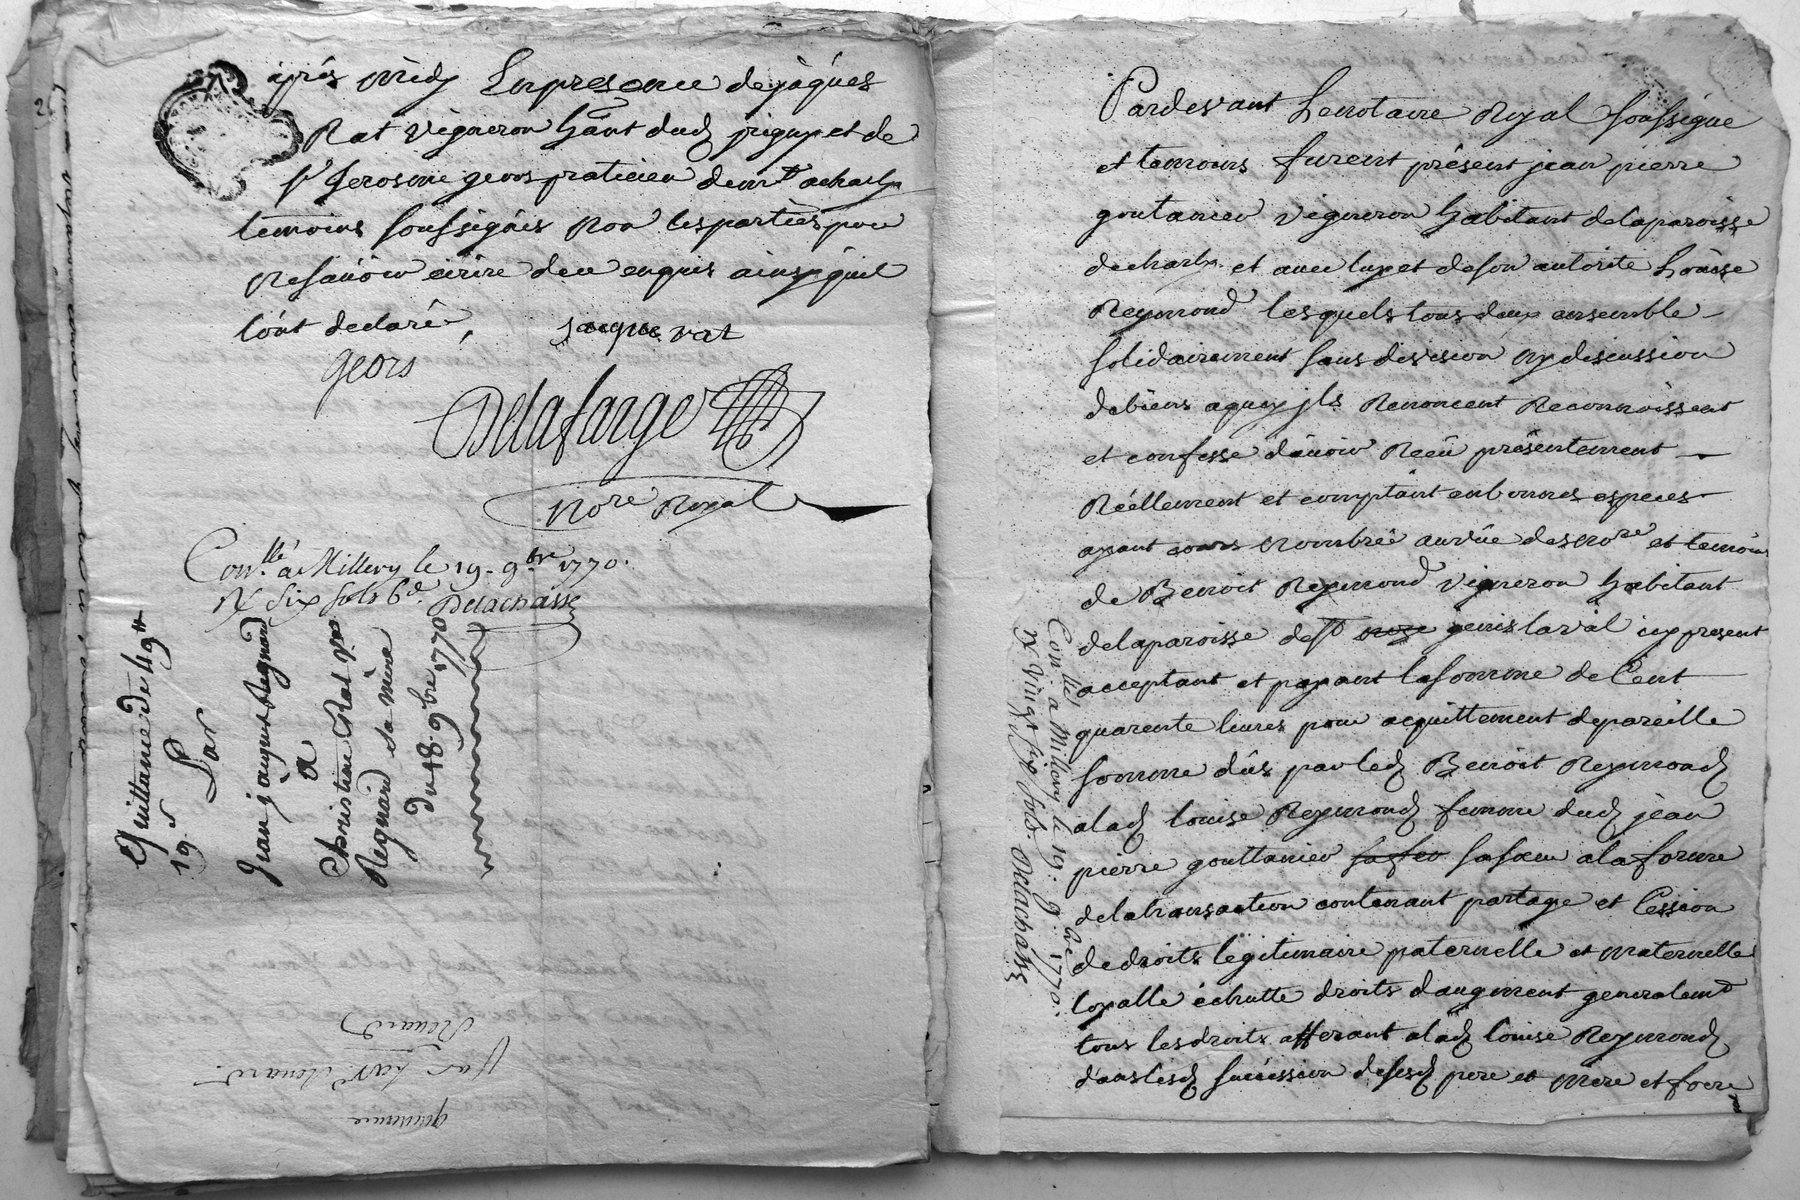 après midy En presence de jâques
Rat vigneron hânt dud prigny et de
sr Jerosme geors praticien demt a charly
temoins soussignés non les parties pour
ne sâvoir ecrire de ce enquis ainsy quil
lònt declaré,
jaque rat
geors
Delafarge
Nore Royal
Con.llé à Millery le 19. 9bre 1770.
R. Six sols 6d. Delachasse
Quittance de 49tt
19s
Par
Jean jacques Regnard
a
Christine Rat vve
Regnard sa mère
du 18. 9bre 1770
quittance
Renard
Pardevant Le notaire Royal soussigné
et temoins furent présent jean pierre
goutanier vigneron habitant de la paroisse
de charly et avec luy et de son autorité Loüise
Reymond lesquels tous deux ensemble
solidairement sans division ny discussion
de biens aquoy jls Renoncent Reconnoissent
et confesse dâvoir Reçû présentement
Réellement et comptant en bonnes especes
ayant cours Nombrée au vüe des nore et temoins
de Benoit Reymond vigneron habitant
de la paroisse de st genis laval icy present
acceptant et payant la somme de Cent
quarente livres pour acquittement de pareille
somme düs par led Benoit Reymond
a lad louise Reymond femme dud jean
pierre gouttanier sa sœur a la forme
de la transaction contenant partage et Cession
de droits legitimaire paternelle et maternelle
loyalle échutte droits daugment generalemt
tous les droits afferant a lad louise Reymond
dans lesd succession de sesd pere et mere et frere
Con.llé a Millery le 19. 9bre 1770.
R. Vingt six sols. Delachasse